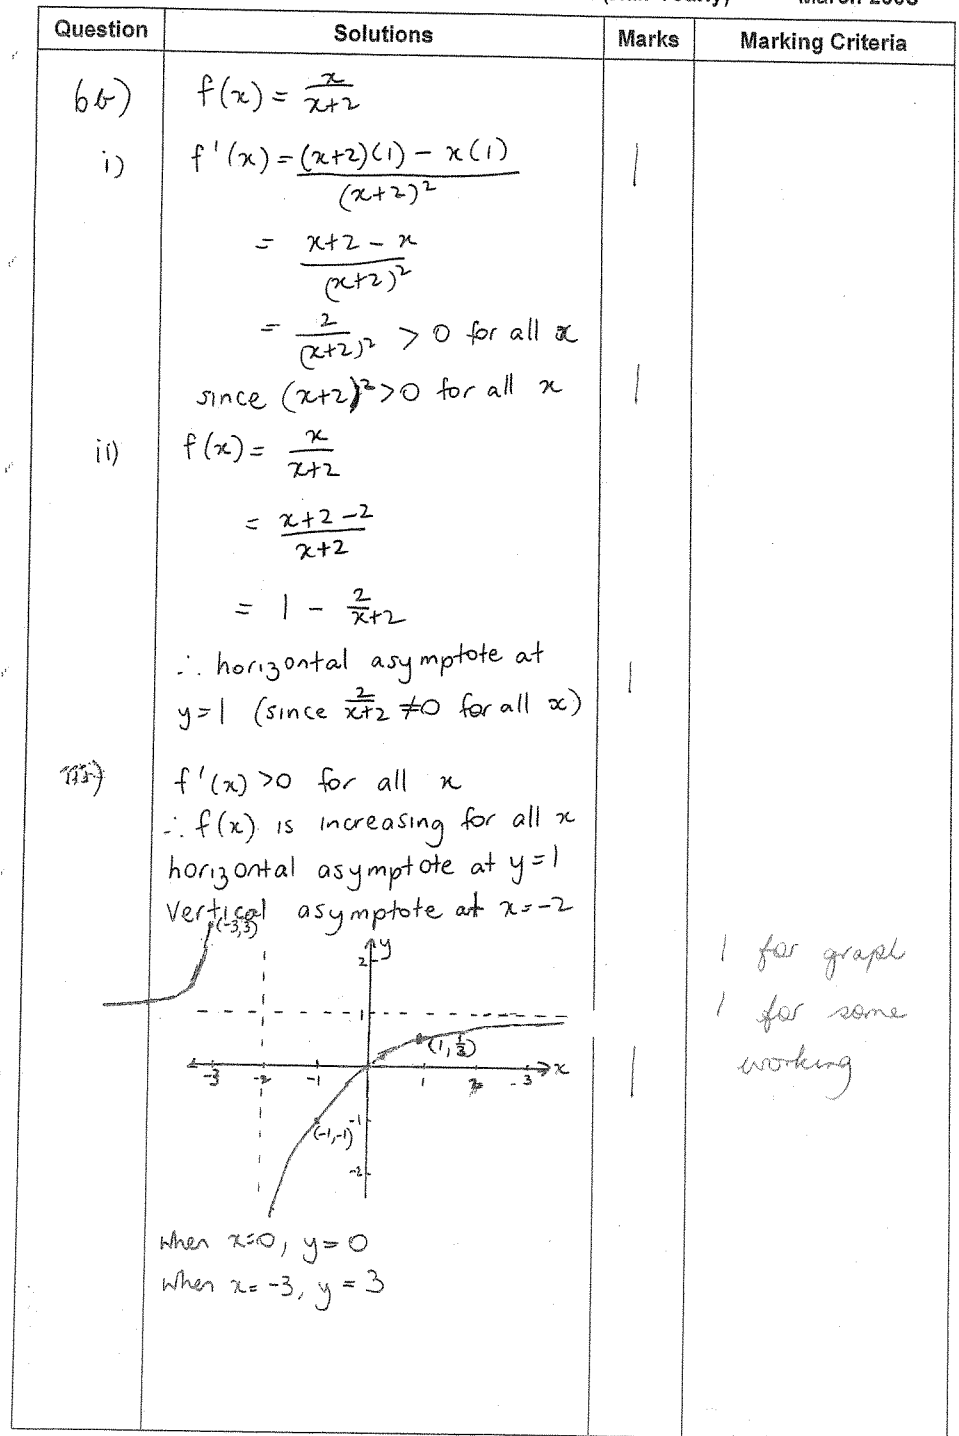 Question Solutions Marks Marking Criteria
6b) f(x) = x/(x+2)
i) f'(x) = ((x+2)(1) - x(1))/(x+2)² 1
= (x+2-x)/(x+2)²
= 2/(x+2)² > 0 for all x
since (x+2)² > 0 for all x 1
ii) f(x) = x/(x+2)
= (x+2-2)/(x+2)
= 1 - 2/(x+2)
∴ horizontal asymptote at 1
y=1 (since 2/(x+2) ≠ 0 for all x)
iii) f'(x) > 0 for all x
∴ f(x) is increasing for all x
horizontal asymptote at y=1
Vertical asymptote at x=-2
(-3,3)
y
2
1
(1, 1/3)
-3 -2 -1 1 2 3 x
(-1,-1) -1
-2
1
1 for graph
1 for some
working
when x=0, y=0
when x=-3, y=3